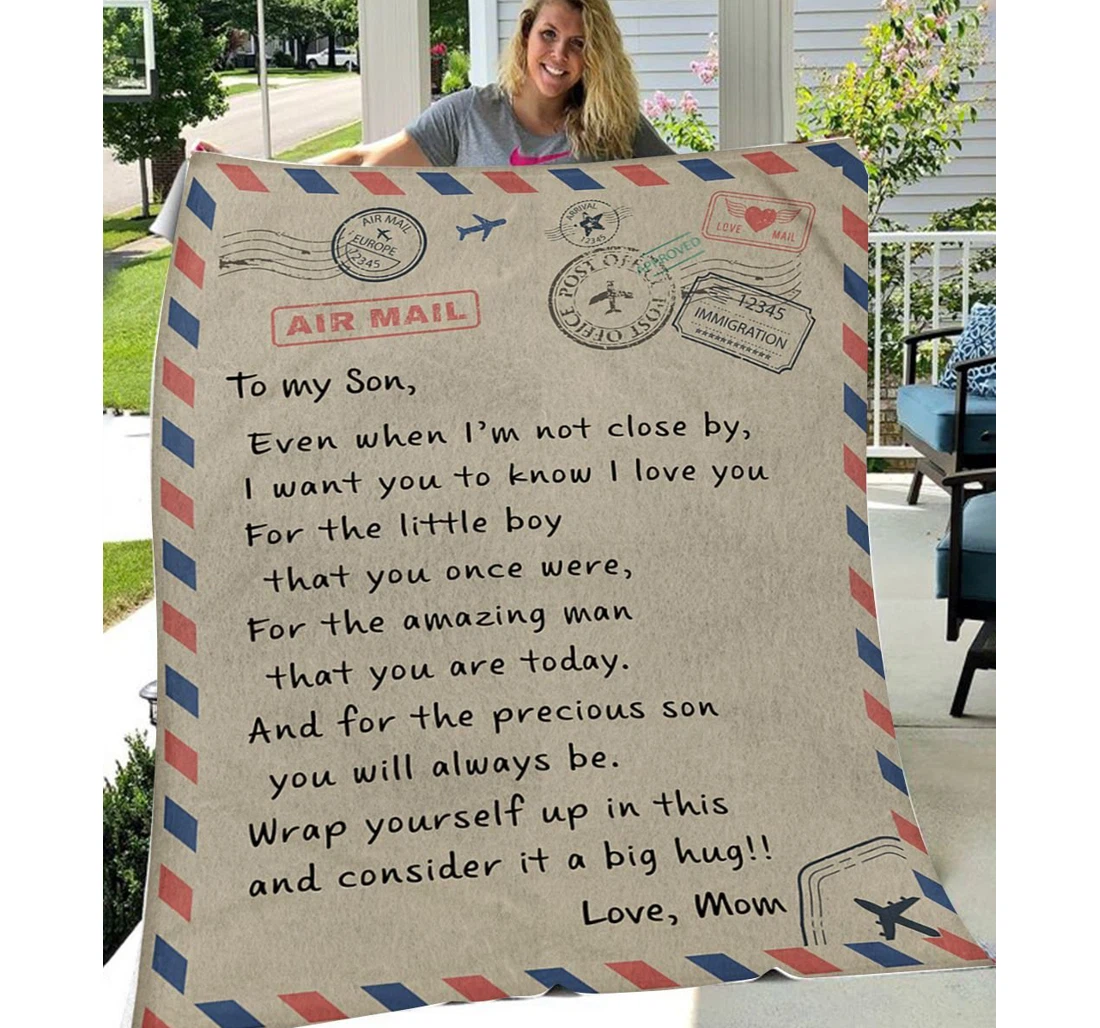 AIR MAIL
EUROPE
12345
ARRIVAL
12345
LOVE MAIL
APPROVED
POST OFFICE POST OFFICE
12345
IMMIGRATION
AIR MAIL
To my Son,
Even when I'm not close by,
I want you to know I love you
For the little boy
that you once were,
For the amazing man
that you are today.
And for the precious son
you will always be.
Wrap yourself up in this
and consider it a big hug!!
Love, Mom